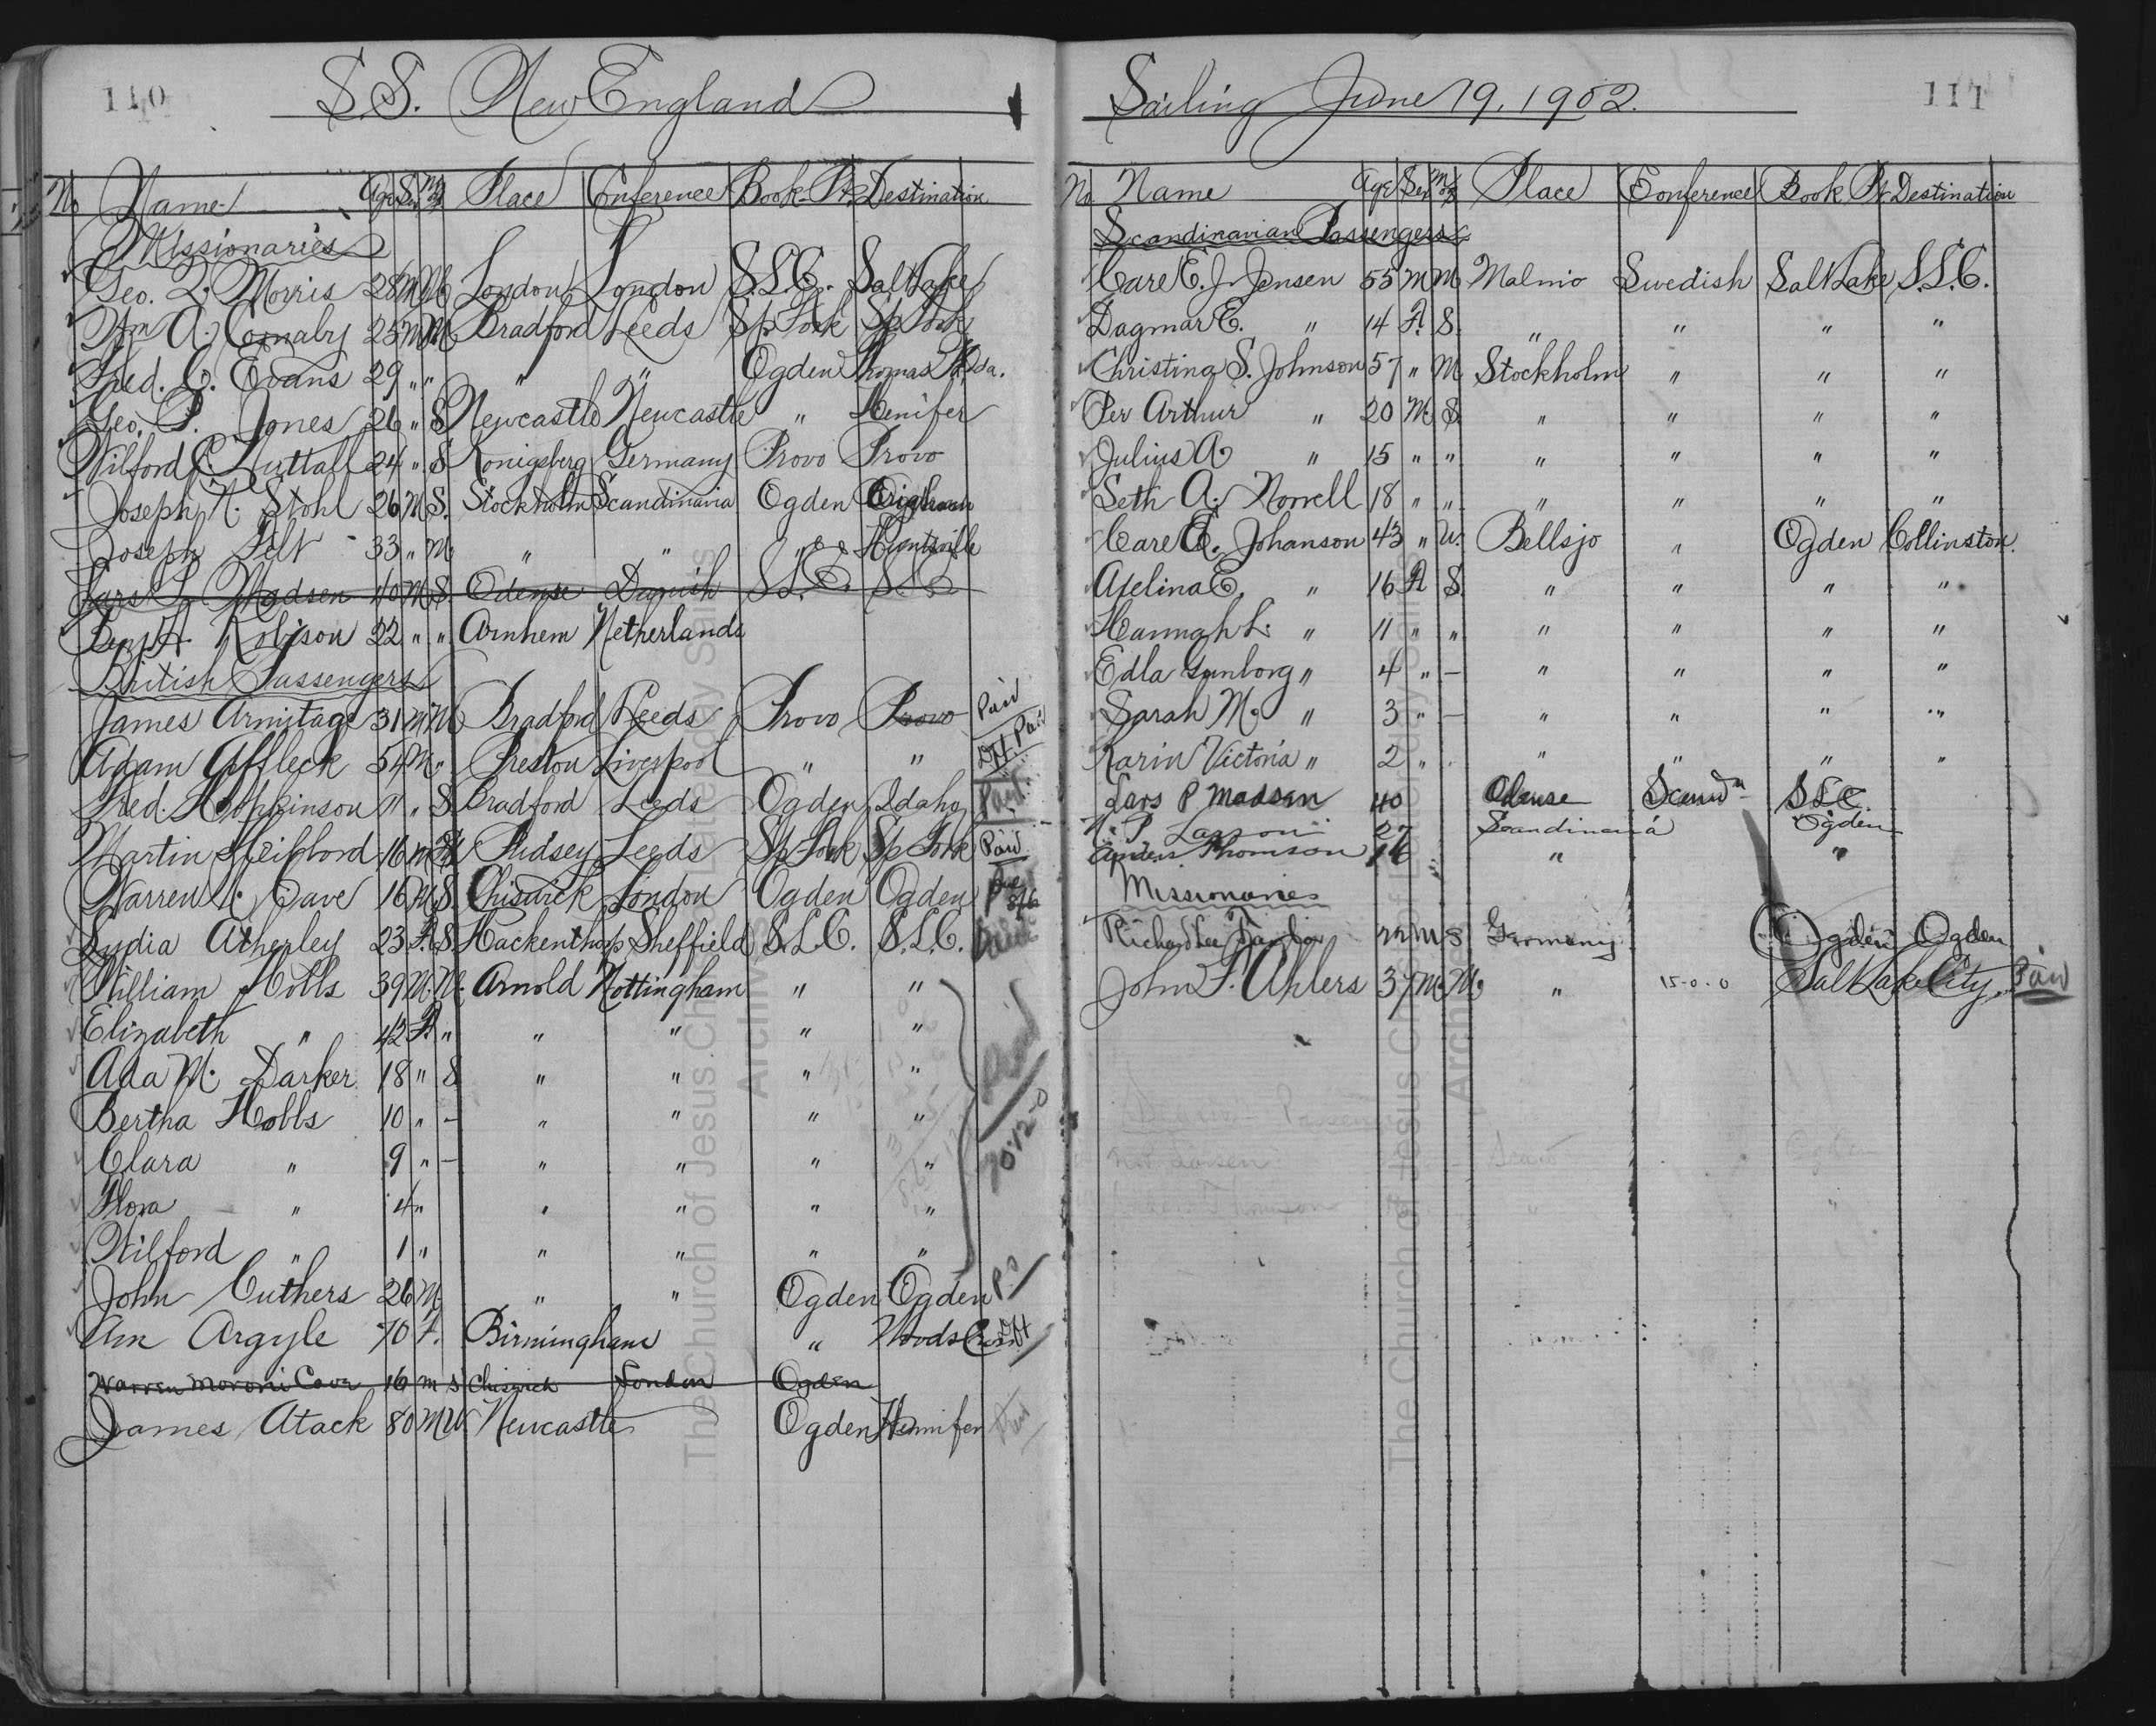 110
S.S. New England
No Name Age Sex M or S Place Conference Book Pt. Destination
Missionaries
Geo. Q. Morris 28 M M London London S.L.C. Salt Lake
Wm A. Cornaby 25 M M Bradford Leeds Sp Fork Sp Fork
Fred. C. Evans 29 " " " " Ogden Thomas F. Ida.
Geo. P. Jones 26 " S Newcastle Newcastle " Henifer
Wilford C. Nuttall 24 " S Konigsberg Germany Provo Provo
Joseph N. Stohl 26 M S. Stockholm Scandinavia Ogden Brigham
Joseph Felt 33 " M " " " Huntsville
Lars P. Madsen 40 M S. Odense Danish S.L.C. S L C
Benj. H. Robison 22 " " Arnhem Netherlands
British Passengers
James Armitage 31 M M Bradford Leeds Provo Provo Paid
Adam Affleck 54 M " Preston Liverpool " " Dft Paid
Fred. Hopkinson 11 " S Bradford Leeds Ogden Idaho Paid
Martin 16 M Pudsey Leeds Sp Fork Sp Fork Paid
Warren M. Cave 16 M S. Chiswick London Ogden Ogden
Lydia Atherley 23 F. S. Hackenthorp Sheffield S.L.C. S.L.C. Paid
William Hobbs 39 M. M. Arnold Nottingham " "
Elizabeth " 42 F. " " " " "
Ada M. Darker 18 " S " " " " Paid
Bertha Hobbs 10 " - " " " "
Clara " 9 " - " " " " 70-12-0
Flora " 4 " " " " "
Wilford " 1 " " " " "
John Cuthers 26 M. " " Ogden Ogden Pd
Ann Argyle 70 F. Birmingham " Woods Cross Dft
Warren Moroni Cave 16 m s Chiswick London Ogden
James Atack 80 M W. Newcastle Ogden Hennifer
Sailing June 19, 1902.
111
No Name Age Sex M or S Place Conference Book Pt Destination
Scandinavian Passengers
Carl E. J. Jensen 55 M M Malmo Swedish Salt Lake S.L.C.
Dagmar E. " 14 F. S. " " " "
Christina S. Johnson 57 " M Stockholm " " "
Per Arthur " 20 M. S. " " " "
Julius A " 15 " " " " " "
Seth A. Norrell 18 " " " " " "
Carl A. Johanson 43 " W. Bellsjo " Ogden Collinston.
Axelina E. " 16 F S. " " " "
Hannah L. " 11 " " " " " "
Edla Gunborg " 4 " - " " " "
Sarah M. " 3 " - " " " "
Karin Victoria " 2 " " " " "
Lars P Madsen 40 Odense Scand'n S L C.
N. P. Larson 27 Scandinavia Ogden
Anders Thomson 16 " "
Missionaries
Richard Lee 22 M S Germany Ogden Ogden
John F. Ahlers 37 M. M. " 15-0-0 Salt Lake City. Paid
The Church of Jesus Christ of Latter-day Saints
Archives
The Church of Jesus Christ of Latter-day Saints
Archives